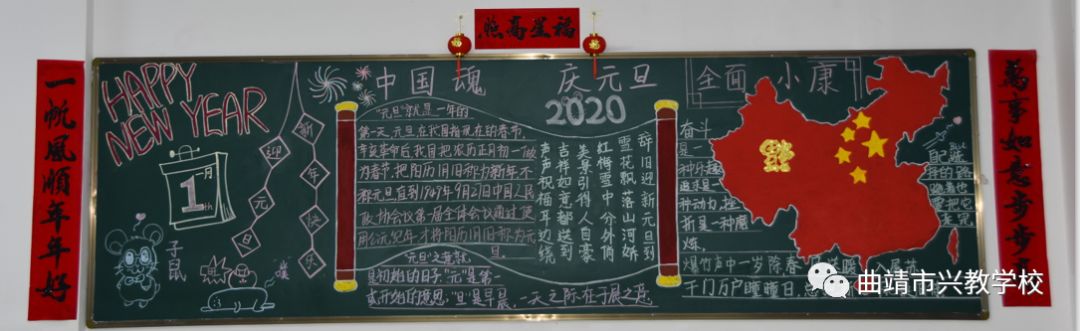 福星高照
一帆風順年年好
萬事如意步步
福
福
HAPPY
NEW YEAR
迎元旦
新年快乐
1月
1th
子鼠
中国魂
庆元旦
2020
全面小康
"元旦"就是一年的
第一天,元旦在我国指现在的春节,
辛亥革命后我国把农历正月初一
为春节,把阳历1月1日称为新年,不
称元旦,直到1949年9月27日中国人民
政协会议第一届全体会议通过使
用公元纪年,才将阳历1月1日称为元
旦。
"元旦"之意就
是初始的日子,"元"是第一
或开始的意思,"旦"是早晨,一天之际在于晨之意.
辞旧迎新元旦到
雪花飘落山河娇
红梅雪中分外俏
美景引得人自豪
吉祥如意都送到
声声祝福耳边绕
奋斗
是一
种乐趣
追求是一
种动力,挫
折是一种磨
炼。
爆竹声中一岁除,春
千门万户曈曈日,总
曲靖市兴教学校